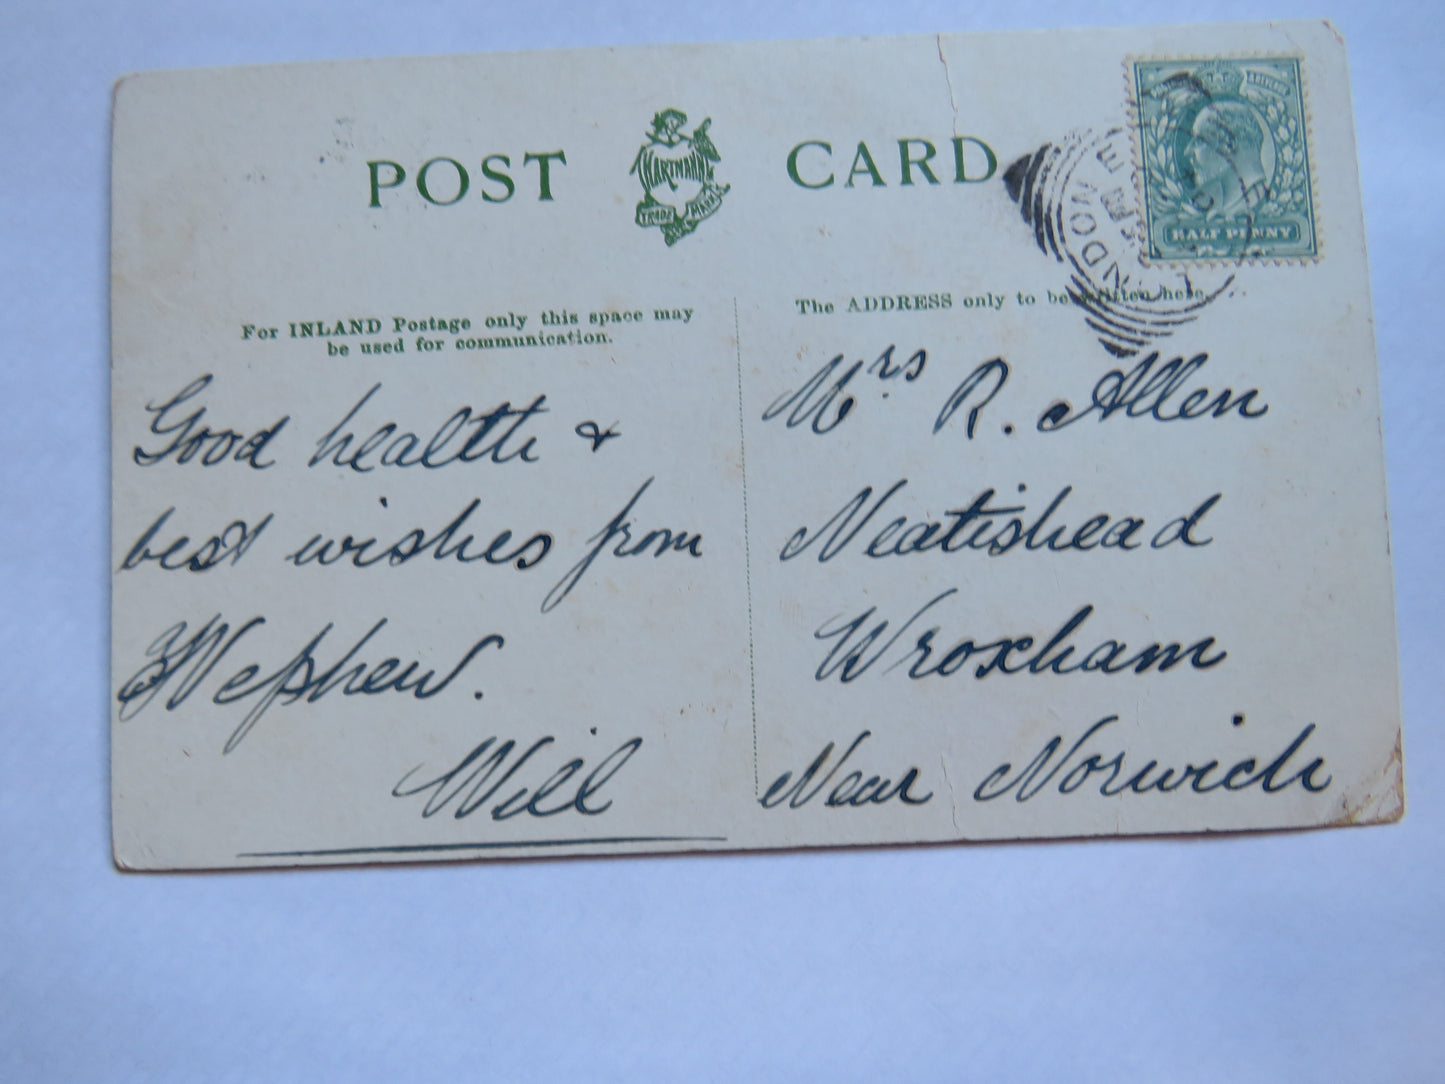 POST CARD
HARTMANN
TRADE MARK
For INLAND Postage only this space may
be used for communication.
The ADDRESS only to be written here.
HALF PENNY
LONDON
Good health &
best wishes from
Nephew.
Will
Mrs. R. Allen
Neatishead
Wroxham
Near Norwich